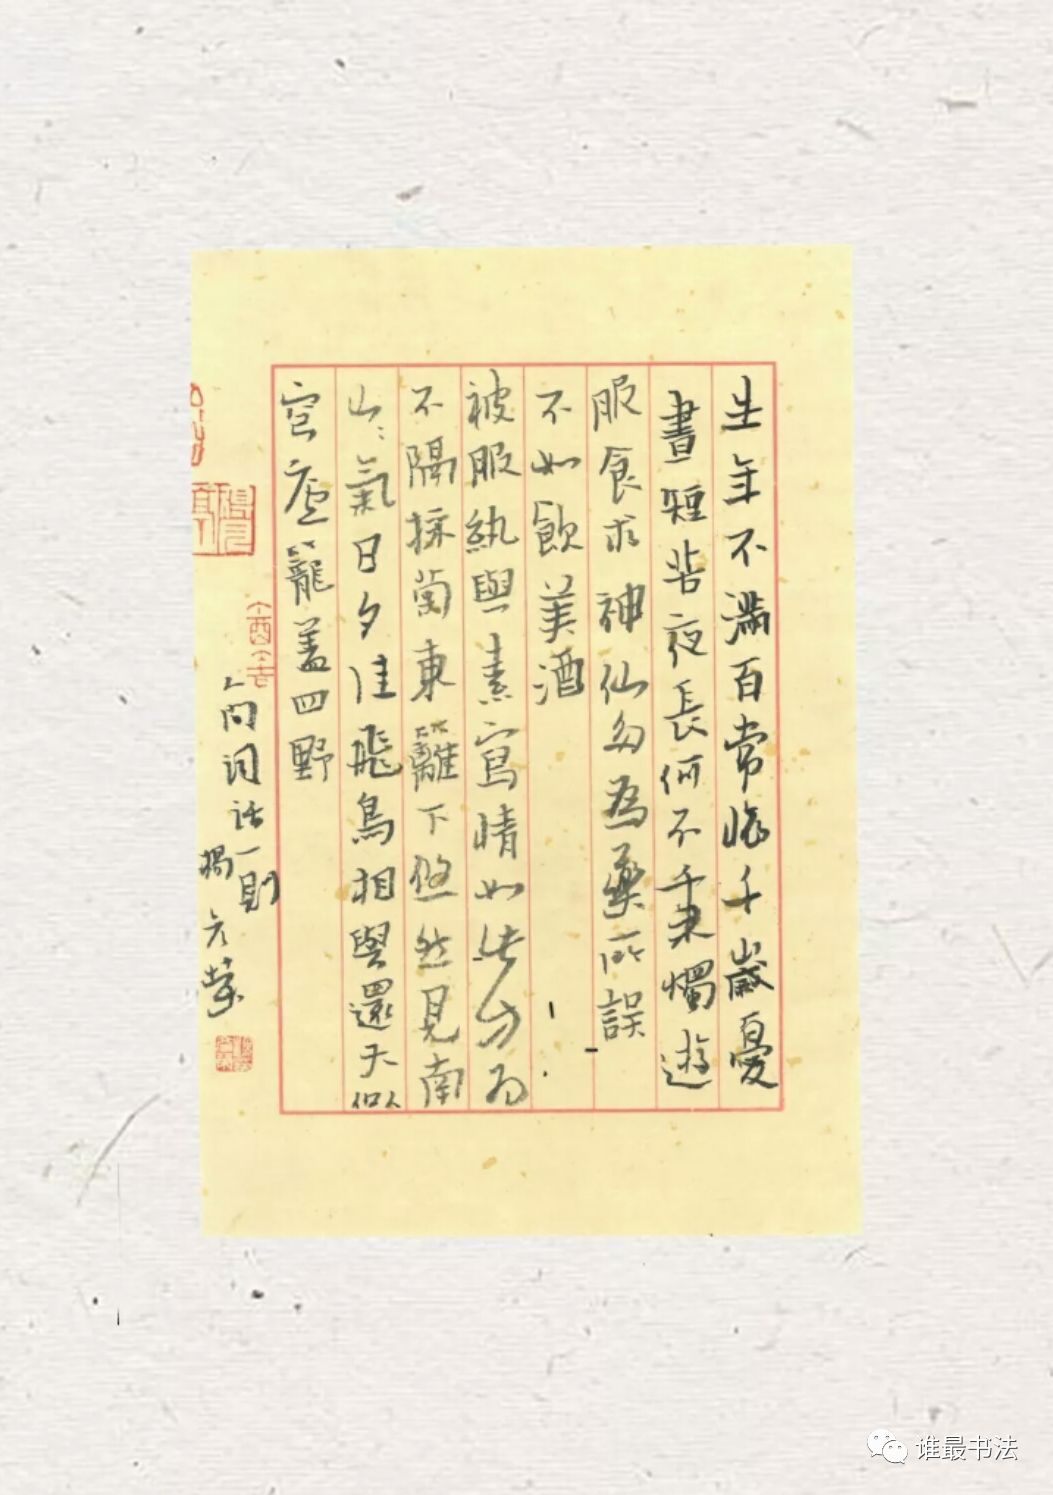 生年不滿百常懷千歲憂
晝短苦夜長何不秉燭遊
服食求神仙多為藥所誤
不如飲美酒
被服紈與素寫情如此方為
不隔採菊東籬下悠然見南
山〻氣日夕佳飛鳥相與還天似
穹廬籠蓋四野
人間詞話一則
谁最书法